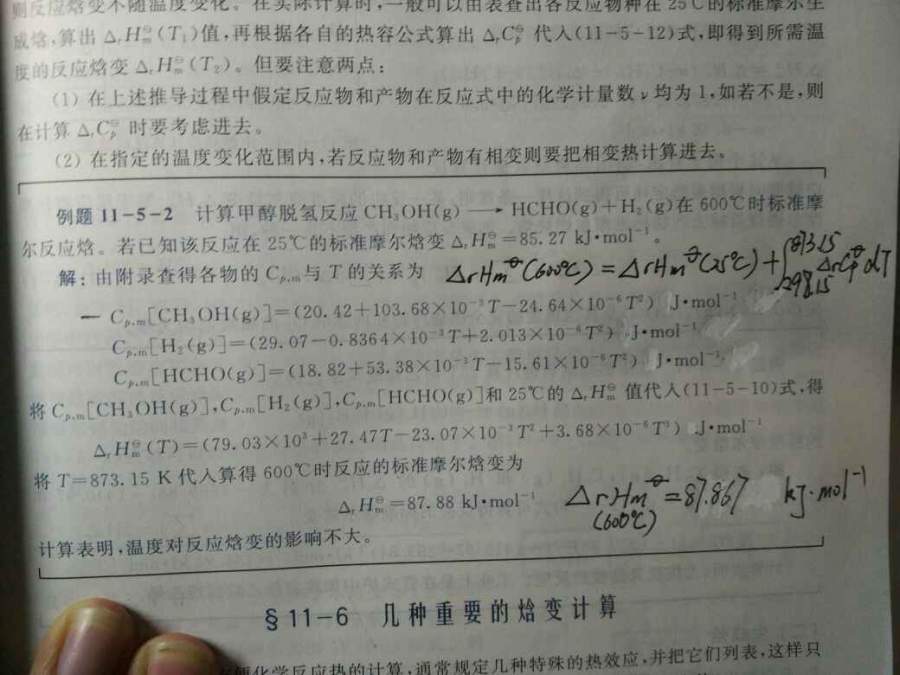 则反应焓变不随温度变化。在实际计算时,一般可以由表查出各反应物种在25℃的标准摩尔生
成焓,算出 ΔᵣH⊖ₘ(T₁)值,再根据各自的热容公式算出 ΔᵣC⊖ₚ 代入(11-5-12)式,即得到所需温
度的反应焓变 ΔᵣH⊖ₘ(T₂)。但要注意两点:
(1) 在上述推导过程中假定反应物和产物在反应式中的化学计量数 ν 均为 1,如若不是,则
在计算 ΔᵣC⊖ₚ 时要考虑进去。
(2) 在指定的温度变化范围内,若反应物和产物有相变则要把相变热计算进去。
例题 11-5-2 计算甲醇脱氢反应 CH₃OH(g) ⟶ HCHO(g)+H₂(g)在 600℃时标准摩
尔反应焓。若已知该反应在 25℃的标准摩尔焓变 ΔᵣH⊖ₘ=85.27 kJ·mol⁻¹。
解: 由附录查得各物的 Cₚ,ₘ与 T 的关系为 ΔrHm⊖(600℃)=ΔrHm⊖(25℃)+∫²⁹⁸·¹⁵₈₇₃.₁₅ ΔrCp⊖dT
— Cₚ,ₘ[CH₃OH(g)]=(20.42+103.68×10⁻³T-24.64×10⁻⁶T²) J·mol⁻¹
Cₚ,ₘ[H₂(g)]=(29.07-0.8364×10⁻³T+2.013×10⁻⁶T²) J·mol⁻¹
Cₚ,ₘ[HCHO(g)]=(18.82+53.38×10⁻³T-15.61×10⁻⁶T²) J·mol⁻¹
将 Cₚ,ₘ[CH₃OH(g)],Cₚ,ₘ[H₂(g)],Cₚ,ₘ[HCHO(g)]和 25℃的 ΔᵣH⊖ₘ 值代入(11-5-10)式,得
ΔᵣH⊖ₘ(T)=(79.03×10³+27.47T-23.07×10⁻³T²+3.68×10⁻⁶T³) J·mol⁻¹
将 T=873.15 K 代入算得 600℃时反应的标准摩尔焓变为
ΔᵣH⊖ₘ=87.88 kJ·mol⁻¹ ΔrHm⊖(600℃)=87.867 kJ·mol⁻¹
计算表明,温度对反应焓变的影响不大。
§11-6 几种重要的焓变计算
化学反应热的计算,通常规定几种特殊的热效应,并把它们列表,这样只